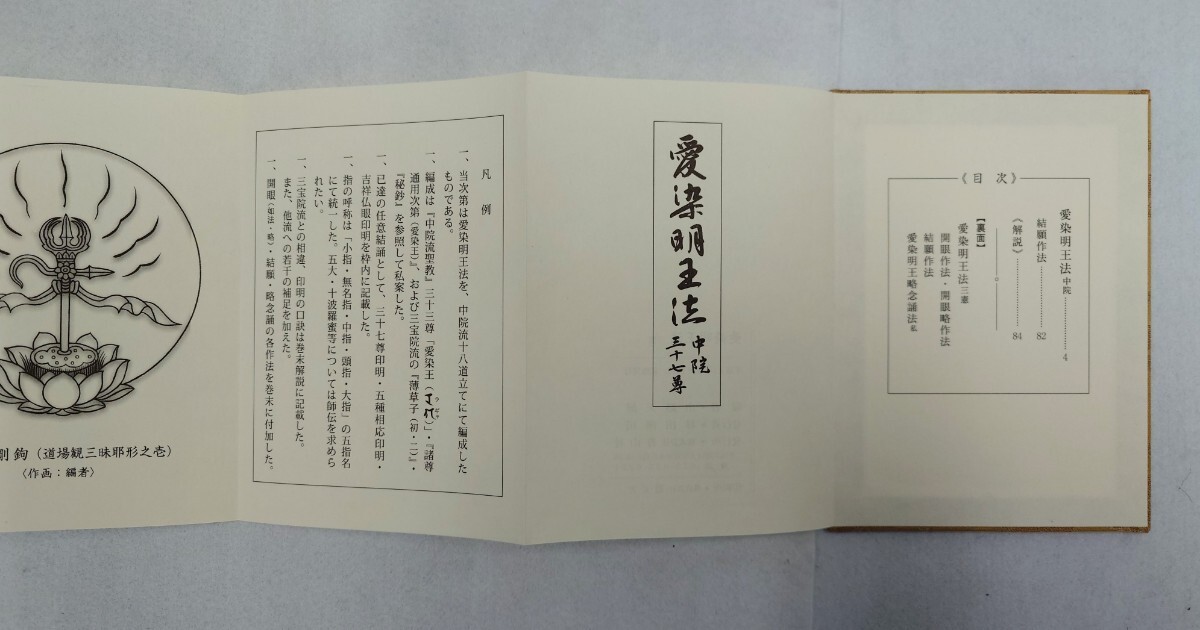 《目次》
愛染明王法 中院 …… 4
結願作法 …… 82
《解説》 …… 84
【裏面】
愛染明王法 三憲
開眼作法・開眼略作法
結願作法
愛染明王略念誦法 私
愛染明王法 中院
三十七尊
凡例
一、当次第は愛染明王法を、中院流十八道立てにて編成した
ものである。
一、編成は『中院流聖教』三十三尊「愛染王（ウン ピツ）」・『諸尊
通用次第（愛染王）』、および三宝院流の『薄草子（初・二）』・
『秘鈔』を参照して私案した。
一、已達の任意結誦として、三十七尊印明・五種相応印明・
吉祥仏眼印明を枠内に記載した。
一、指の呼称は「小指・無名指・中指・頭指・大指」の五指名
にて統一した。五大・十波羅蜜等については師伝を求めら
れたい。
一、三宝院流との相違、印明の口訣は巻末解説に記載した。
また、他流への若干の補足を加えた。
一、開眼（如法・略）・結願・略念誦の各作法を巻末に付加した。
剛鉤（道場観三昧耶形之壱）
〈作画：編者〉